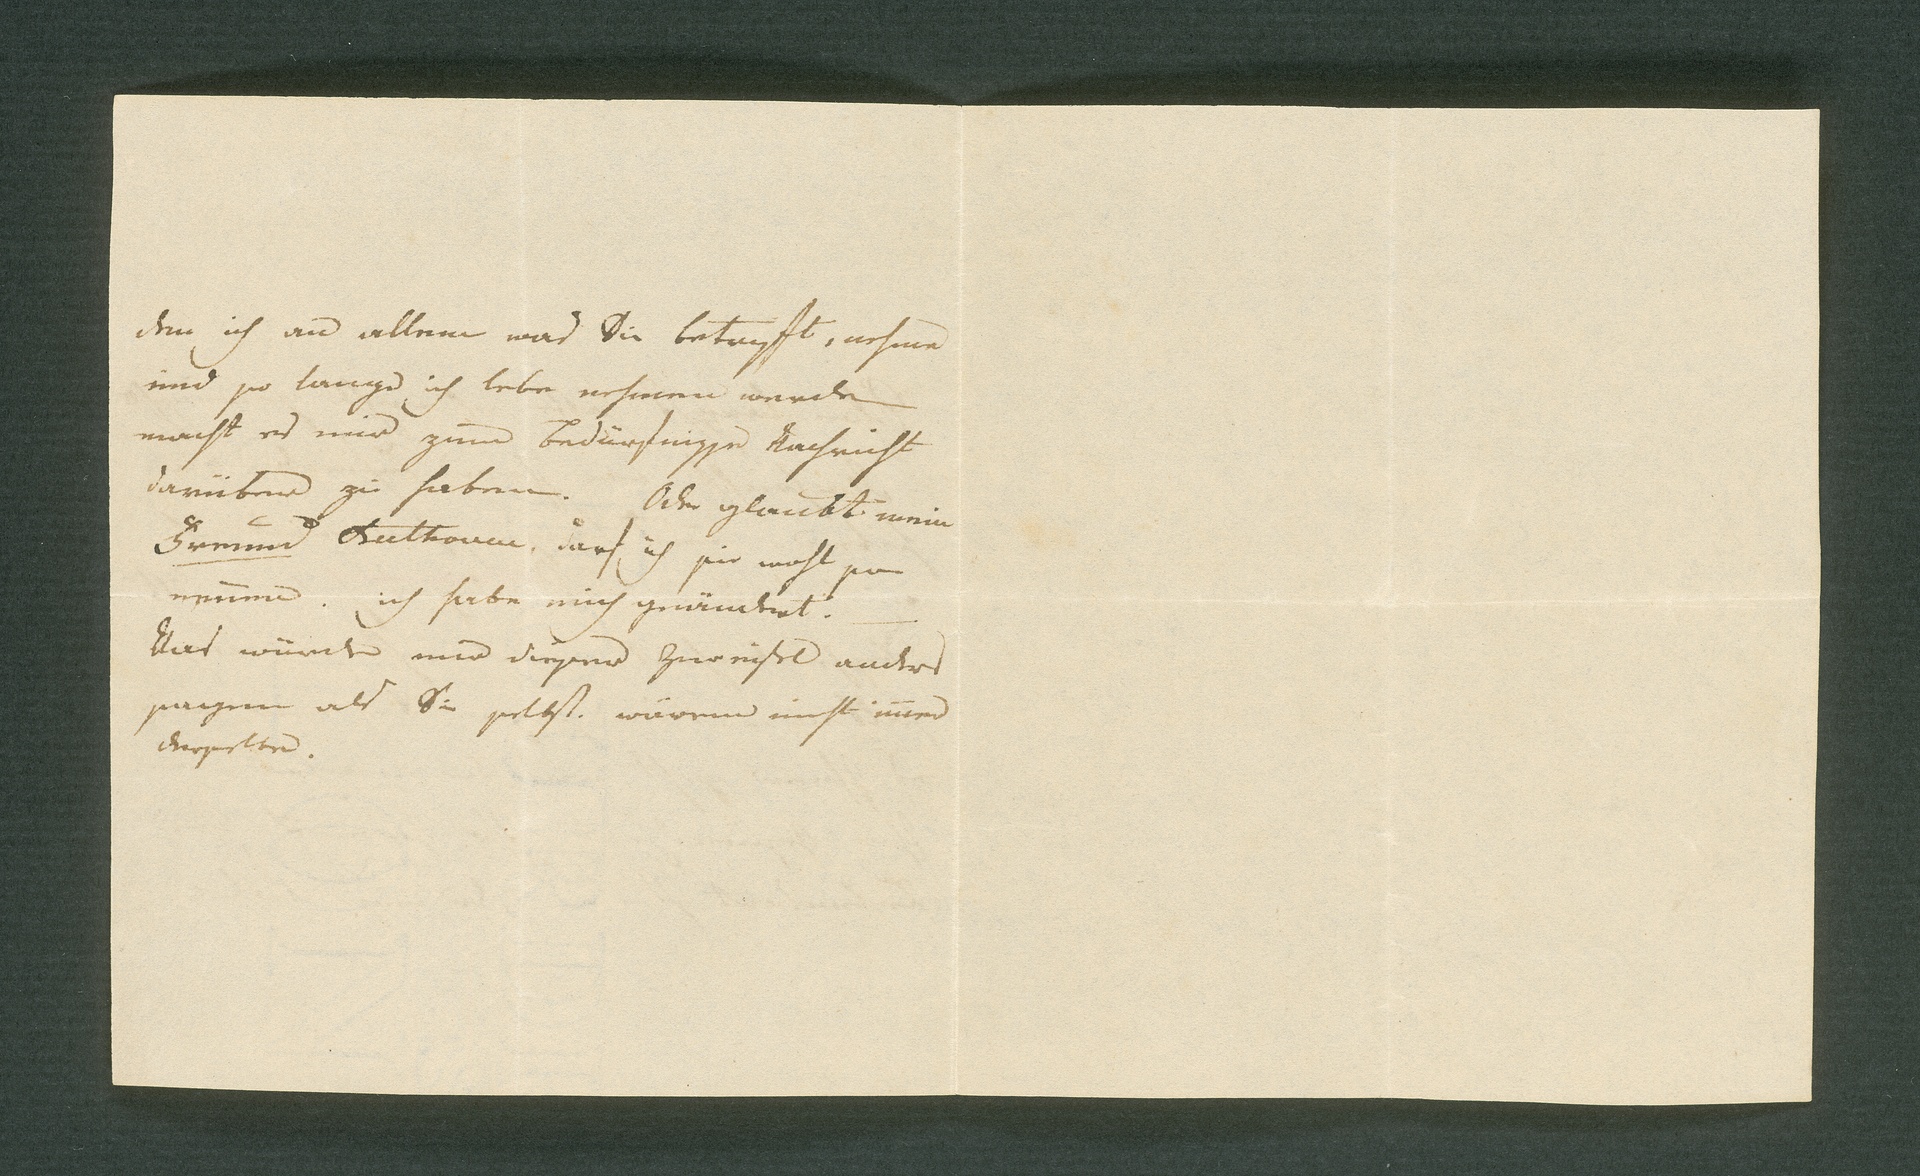 den ich an allem was Sie betryfft, nehme
und so lange ich lebe nehmen werde
macht es mir zum bedürfnisse Nachricht
darüber zu haben. Oder glaubt mein
Freund Beethoven, darf ich sie wohl so
neñen. ich habe mich geändert. —
Was würde mir dieser Zweifel anders
sagen als Sie selbst. wären nicht im̄er
derselbe.